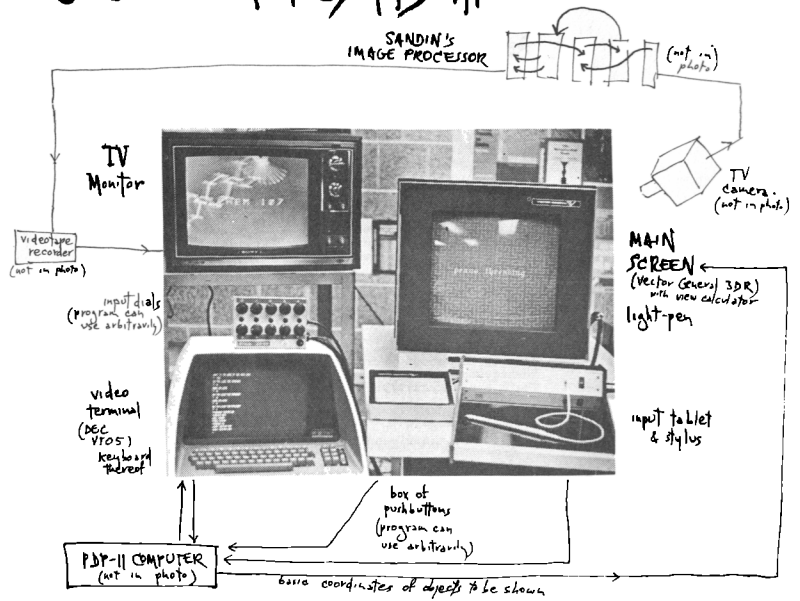 SANDIN'S
IMAGE PROCESSOR
(not in
photo)
TV
Monitor
TV
camera.
(not in photo)
videotape
recorder
(not in photo)
CHEM 107
MAIN
SCREEN
(Vector General 3DR)
with view calculator
light-pen
input dials
(program can
use arbitrarily)
video
terminal
(DEC
VT05)
keyboard
thereof
input tablet
& stylus
box of
pushbuttons
(program can
use arbitrarily)
PDP-11 COMPUTER
(not in photo)
basic coordinates of objects to be shown